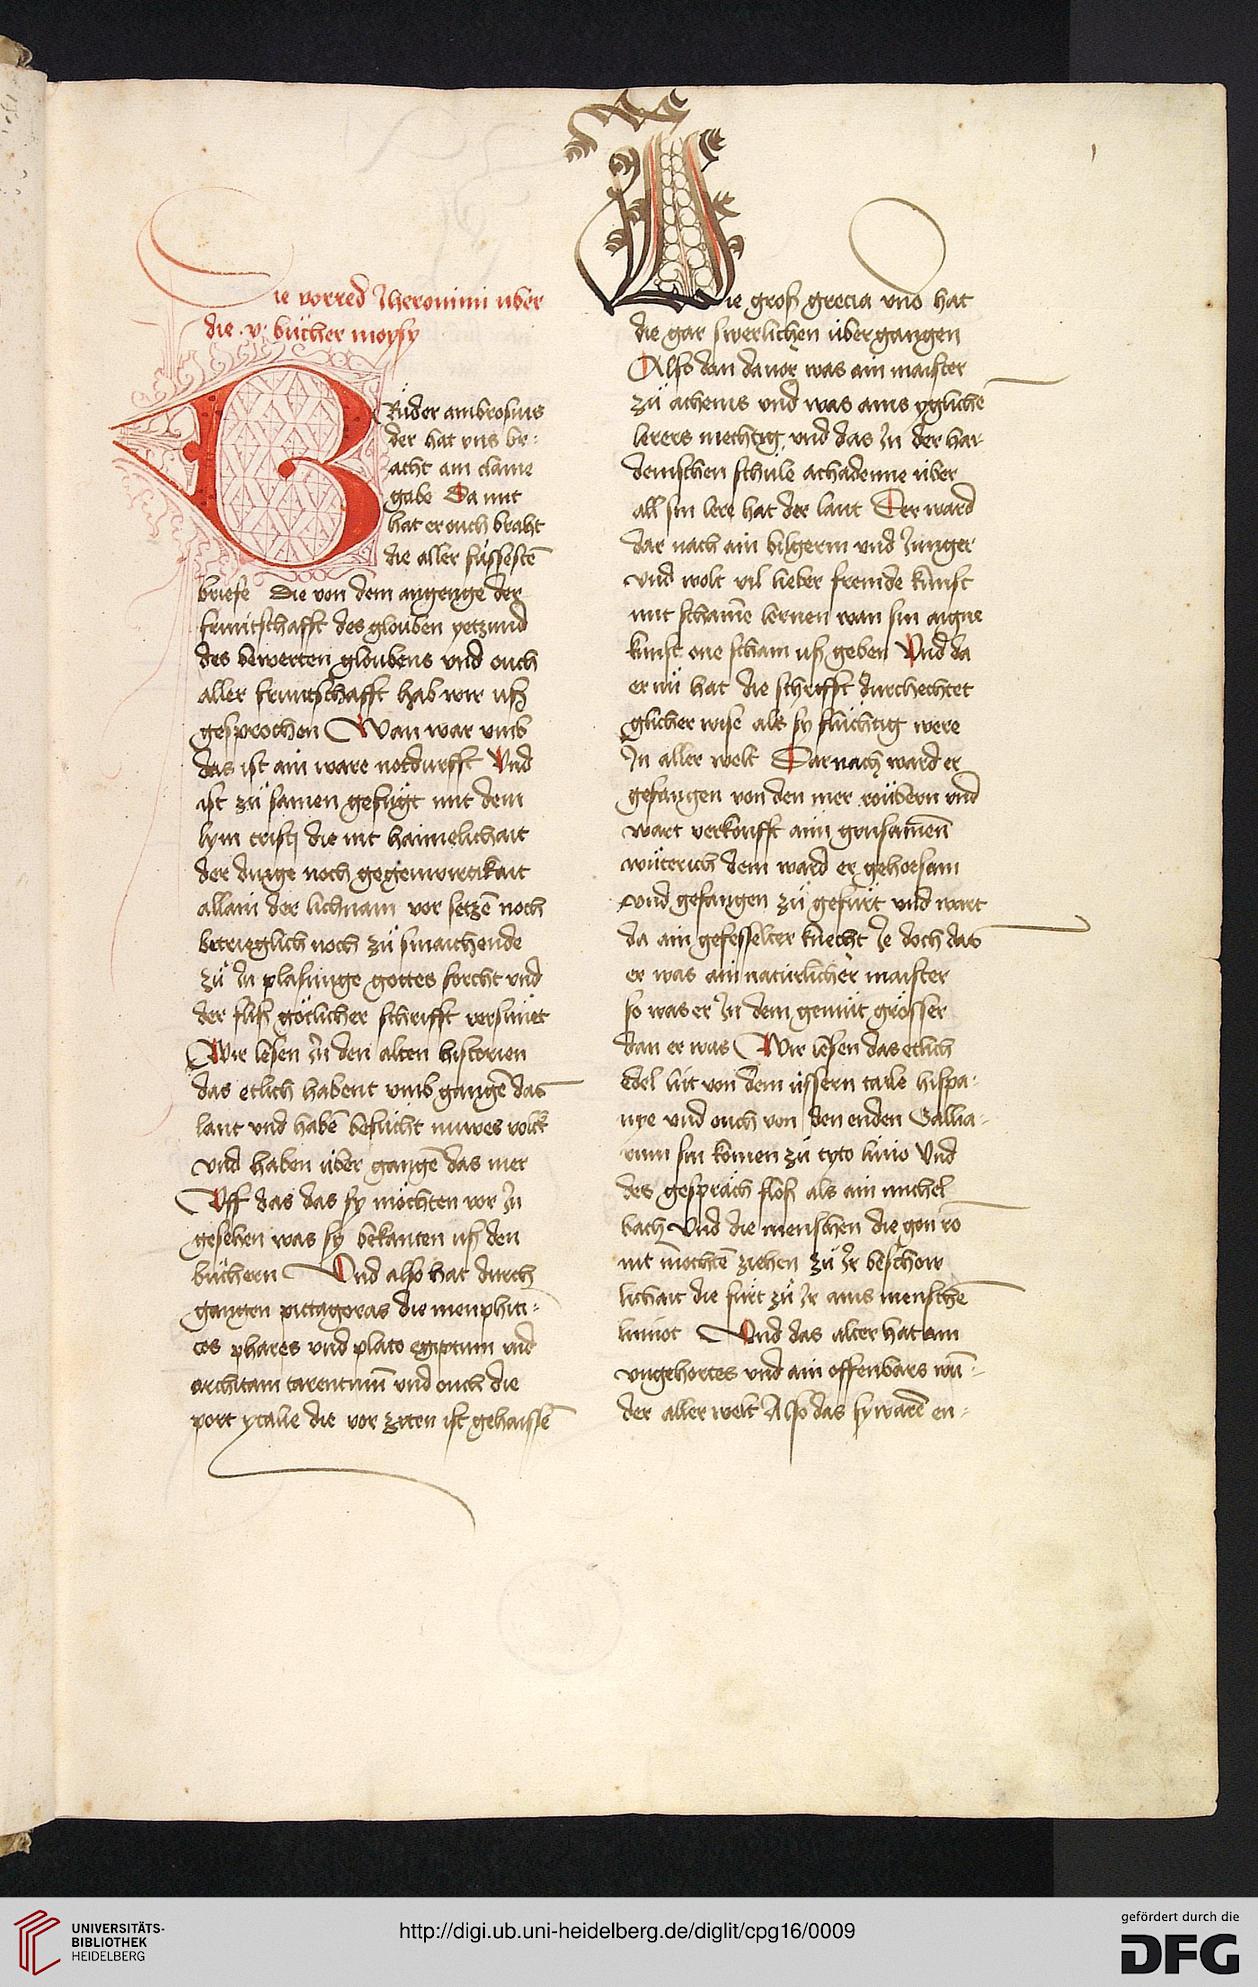 Die vorred Jheronimi über
die .v. bücher moysy
BRüder ambrosius
der hat vns br-
acht ain claine
gabe Da mit
hat er ouch braht
die aller süssestē
briefe Die von dem angenge der
fruntschafft des glouben yetzund
des bewerten gloubens vnd ouch
aller fruntschafft hab wir uß
gesprochen Wan war vmb
das ist ain ware notdurfft Vnd
ist zů samen gefügt mit dem
lym cristi die nit haimelichait
der dinge noch gegenwirtikait
allain der lichnam vor setzē noch
betrieglich noch zů smaichende
zů plasunge gottes forcht vnd
der fliß götlicher schrifft versünet
Wir lesen In den alten historien
das etlich habent vmb gangē das
lant vnd habē besücht nuwes volk
vnd haben über gangē das mer
Vff das das sy möchten vor In
gesehen was sy bekanten uß den
büchern Vnd also hat durch
gangen pictagoras die menphiti-
cos phares vnd plato egiptum vnd
architam tarentinū vnd ouch die
port ytalie die vor ziten ist gehaissē
Die groß grecia vnd hat
die gar swerlichen übergangen
Also dan dauor was ain maister
zů athenis vnd was ains ygliche
lerers mechtig vnd das In der har
demschen schůle achademie über
all sin lere hat der lant Der ward
dar nach ain bilgerin vnd Junger
vnd wolt vil lieber fremde kunst
mit schame lernen wan sin aigne
kunst one scham uß geben Vnd da
er nü hat die schrifft durchechtet
glicher wise als sy flüchtig were
In aller welt Darnach ward er
gefangen von den mer röubern vnd
wart verkoufft aim grusamen
wüterich dem ward er gehorsam
vnd gefangen zů gefürt vnd wart
da ain gefesselter knecht Je doch das
er was ain natürlicher maister
so was er In dem gemüt grösser
dan er was Wir lesen das etlich
edel lüt von dem üssern taile hispa-
nye vnd ouch von den enden Gallia-
rum sin komen zů tyto liuio Vnd
des gespräch floß als ain michel
bach Vnd die menschen die gon ro
nit mochtē ziehen zů Ir beschow
lichait die fürt zů Ir ains menschē
lümot Vnd das alter hat ain
vngehortes vnd ain offenbars wū-
der aller welt Also das sy warē en-
UNIVERSITÄTS-
BIBLIOTHEK
HEIDELBERG
http://digi.ub.uni-heidelberg.de/diglit/cpg16/0009
gefördert durch die
DFG